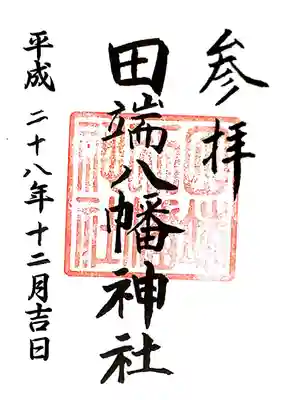 参拝
田端八幡神社
平成二十八年十二月吉日